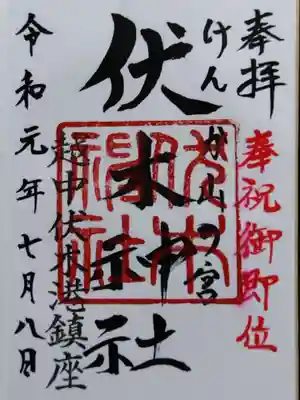 奉拝
奉祝御即位
けんか山の宮
伏木神社
越中伏木港鎮座
令和元年七月八日